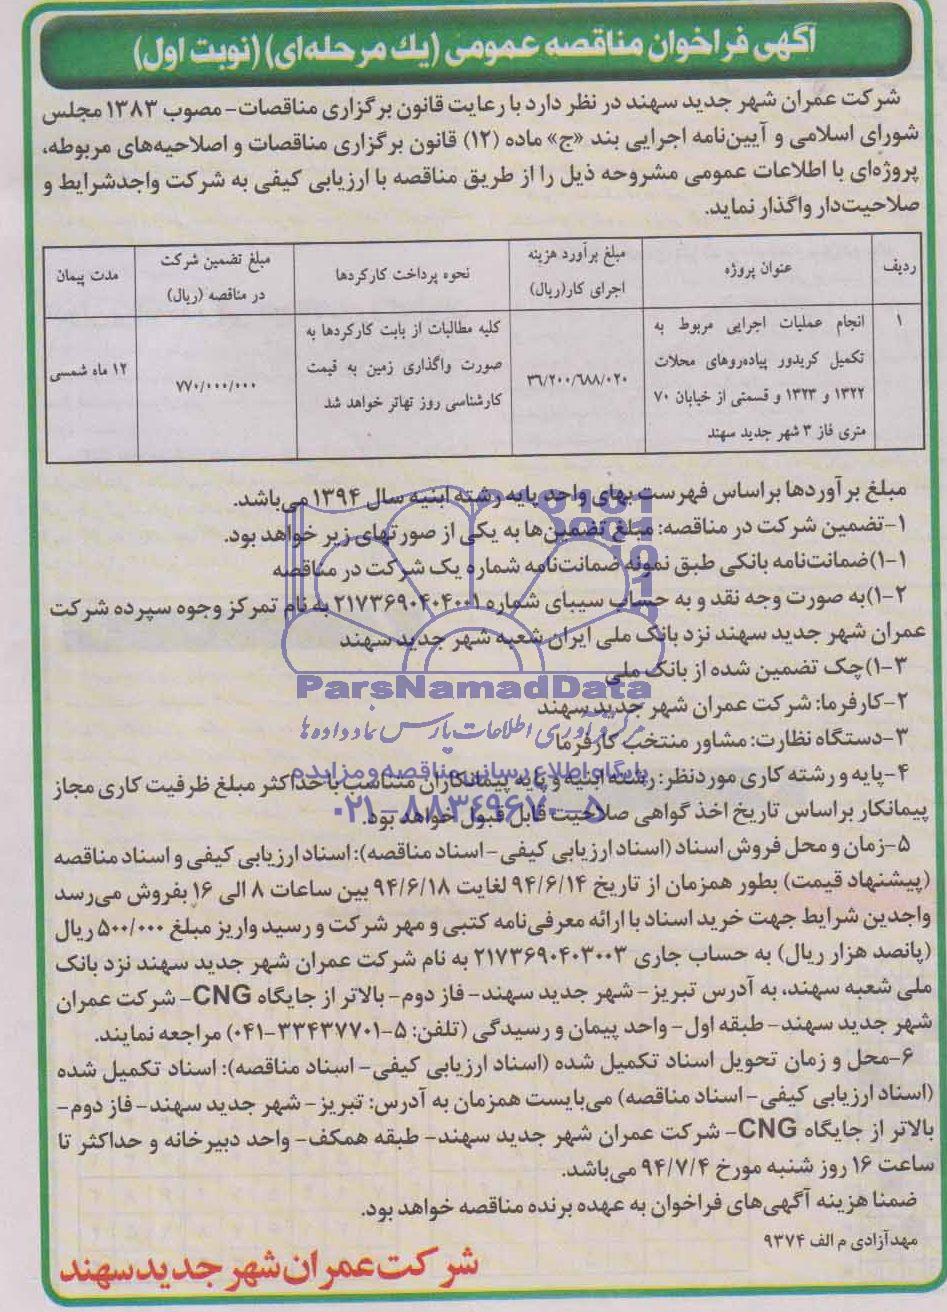 آگهی فراخوان مناقصه عمومی (یك مرحله‌ای) (نوبت اول)
شرکت عمران شهر جدید سهند در نظر دارد با رعایت قانون برگزاری مناقصات- مصوب ۱۳۸۳ مجلس
شورای اسلامی و آیین‌نامه اجرایی بند «ج» ماده (۱۲) قانون برگزاری مناقصات و اصلاحیه‌های مربوطه،
پروژه‌ای با اطلاعات عمومی مشروحه ذیل را از طریق مناقصه با ارزیابی کیفی به شرکت واجدشرایط و
صلاحیت‌دار واگذار نماید.
ردیف
عنوان پروژه
مبلغ برآورد هزینه
اجرای کار(ریال)
نحوه پرداخت کارکردها
مبلغ تضمین شرکت
در مناقصه (ریال)
مدت پیمان
۱
انجام عملیات اجرایی مربوط به
تکمیل کریدور پیاده‌روهای محلات
۱۳۲۲ و ۱۳۲۳ و قسمتی از خیابان ۷۰
متری فاز ۳ شهر جدید سهند
۳۶/۲۰۰/۶۸۸/۰۲۰
کلیه مطالبات از بابت کارکردها به
صورت واگذاری زمین به قیمت
کارشناسی روز تهاتر خواهد شد
۷۷۰/۰۰۰/۰۰۰
۱۲ ماه شمسی
مبلغ برآوردها براساس فهرست بهای واحد پایه رشته ابنیه سال ۱۳۹۴ می‌باشد.
۱-تضمین شرکت در مناقصه: مبلغ تضمین‌ها به یکی از صورتهای زیر خواهد بود.
۱-۱)ضمانت‌نامه بانکی طبق نمونه ضمانت‌نامه شماره یک شرکت در مناقصه
۱-۲)به صورت وجه نقد و به حساب سیبای شماره ۲۱۷۳۶۹۰۴۰۴۰۰۱ به نام تمرکز وجوه سپرده شرکت
عمران شهر جدید سهند نزد بانک ملی ایران شعبه شهر جدید سهند
۱-۳)چک تضمین شده از بانک ملی
ParsNamadData
۲-کارفرما: شرکت عمران شهر جدید سهند
مرکز فرآوری اطلاعات پارس نماد داده‌ها
۳-دستگاه نظارت: مشاور منتخب کارفرما
پایگاه اطلاع رسانی مناقصه و مزایده
۴-پایه و رشته کاری موردنظر: رشته ابنیه و پایه پیمانکاران متناسب با حداکثر مبلغ ظرفیت کاری مجاز
۰۲۱-۸۸۳۴۹۶۷۰-۵
پیمانکار براساس تاریخ اخذ گواهی صلاحیت قابل قبول خواهد بود.
۵-زمان و محل فروش اسناد (اسناد ارزیابی کیفی- اسناد مناقصه): اسناد ارزیابی کیفی و اسناد مناقصه
(پیشنهاد قیمت) بطور همزمان از تاریخ ۹۴/۶/۱۴ لغایت ۹۴/۶/۱۸ بین ساعات ۸ الی ۱۶ بفروش می‌رسد
واجدین شرایط جهت خرید اسناد با ارائه معرفی‌نامه کتبی و مهر شرکت و رسید واریز مبلغ ۵۰۰/۰۰۰ ریال
(پانصد هزار ریال) به حساب جاری ۲۱۷۳۶۹۰۴۰۳۰۰۳ به نام شرکت عمران شهر جدید سهند نزد بانک
ملی شعبه سهند، به آدرس تبریز- شهر جدید سهند- فاز دوم- بالاتر از جایگاه CNG- شرکت عمران
شهر جدید سهند- طبقه اول- واحد پیمان و رسیدگی (تلفن: ۵-۳۳۴۳۷۷۰۱-۰۴۱) مراجعه نمایند.
۶-محل و زمان تحویل اسناد تکمیل شده (اسناد ارزیابی کیفی- اسناد مناقصه): اسناد تکمیل شده
(اسناد ارزیابی کیفی- اسناد مناقصه) می‌بایست همزمان به آدرس: تبریز- شهر جدید سهند- فاز دوم-
بالاتر از جایگاه CNG- شرکت عمران شهر جدید سهند- طبقه همکف- واحد دبیرخانه و حداکثر تا
ساعت ۱۶ روز شنبه مورخ ۹۴/۷/۴ می‌باشد.
ضمنا هزینه آگهی‌های فراخوان به عهده برنده مناقصه خواهد بود.
مهدآزادی م الف ۹۳۷۴
شرکت عمران شهر جدید سهند